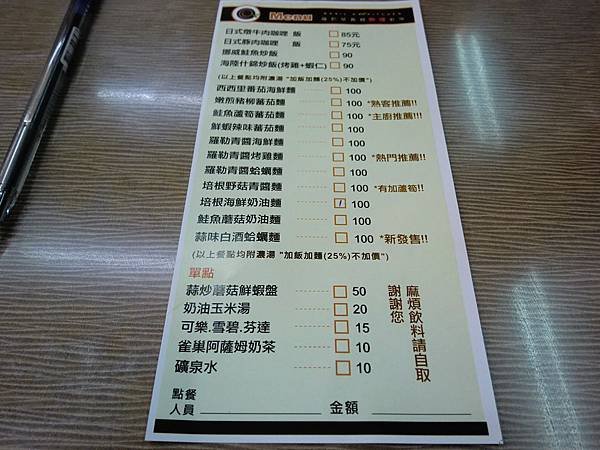 Menu
日式燉牛肉咖哩 飯 85元
日式豚肉咖哩 飯 75元
挪威鮭魚炒飯 90
海陸什錦炒飯(烤雞+蝦仁) 90
(以上餐點均附濃湯 "加飯加麵(25%)不加價")
西西里番茄海鮮麵 100
嫩煎豬柳蕃茄麵 100 *熟客推薦!!
鮭魚蘆筍蕃茄麵 100 *主廚推薦!!!
鮮蝦辣味蕃茄麵 100
羅勒青醬海鮮麵 100
羅勒青醬烤雞麵 100 *熱門推薦!!
羅勒青醬蛤蠣麵 100
培根野菇青醬麵 100 *有加蘆筍!!
培根海鮮奶油麵 / 100
鮭魚蘑菇奶油麵 100
蒜味白酒蛤蠣麵 100 *新發售!!
(以上餐點均附濃湯 "加飯加麵(25%)不加價")
單點
蒜炒蘑菇鮮蝦盤 50
奶油玉米湯 20
可樂.雪碧.芬達 15
雀巢阿薩姆奶茶 10
礦泉水 10
麻煩飲料請自取
謝謝您
點餐
人員 金額